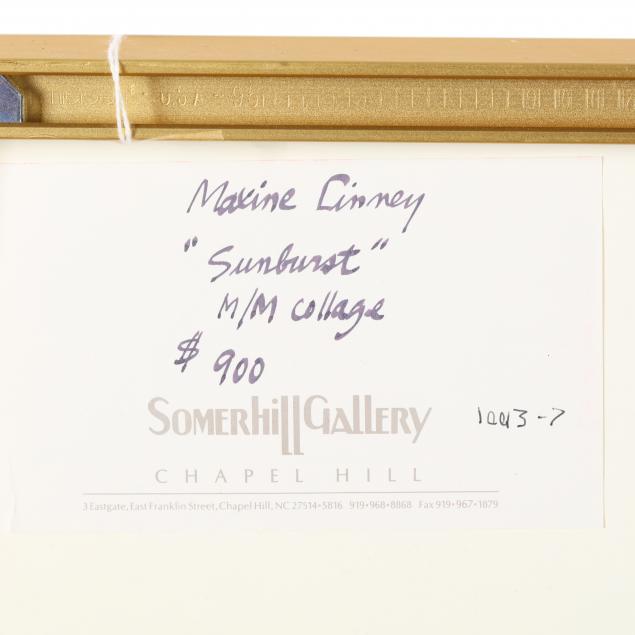 U.S.A.
Maxine Linney
"Sunburst"
M/M collage
$900
SOMERHILL GALLERY
1993-7
CHAPEL HILL
3 Eastgate, East Franklin Street, Chapel Hill, NC 27514•5816 919•968•8868 Fax 919•967•1879